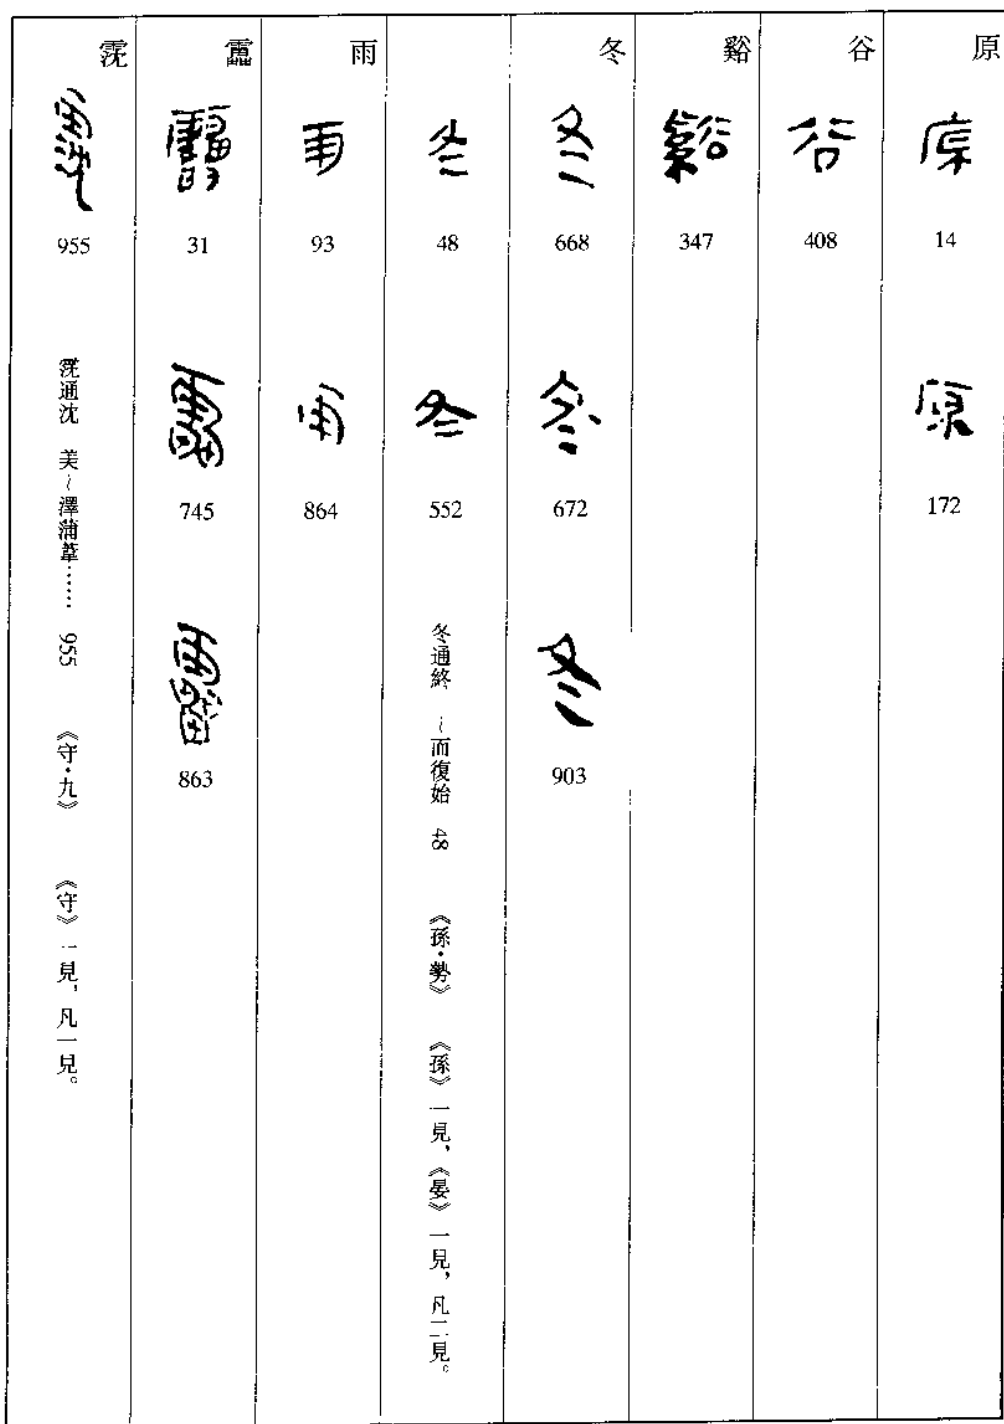 原
14
172
谷
408
谿
347
冬
668
672
903
48
552
冬通終　～而復始　48　《孫·勢》　《孫》一見，《晏》一見，凡二見。
雨
93
864
靁
31
745
863
霃
955
霃通沈　美～澤蒲葦……　955　《守·九》　《守》一見，凡一見。